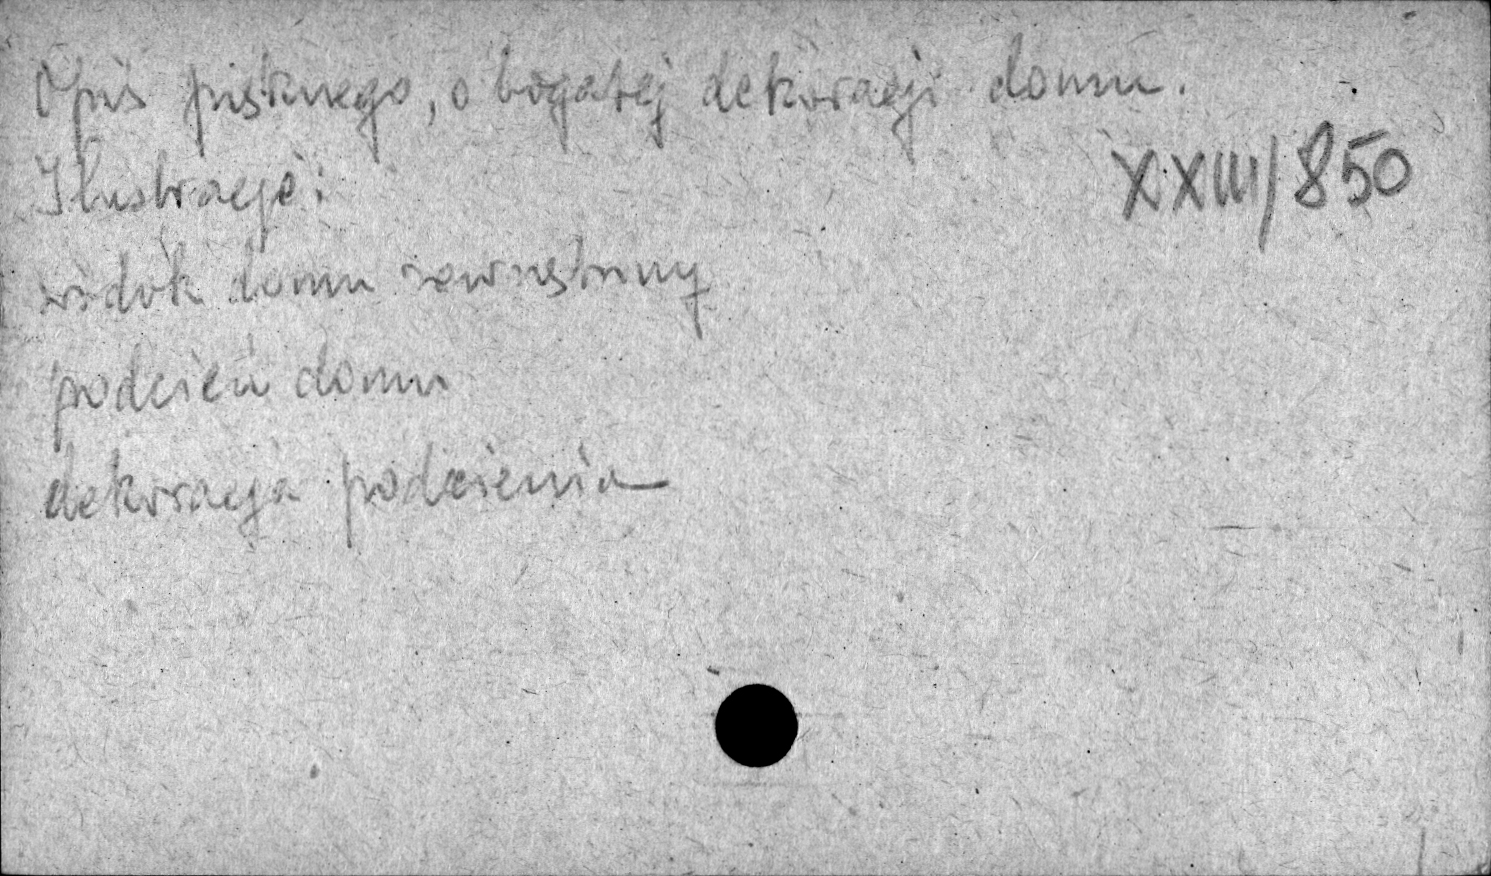 Opis pięknego, o bogatej dekoracji domu.
XXIII/850
Ilustracje:
widok domu zewnętrzny
podcień domu
dekoracja podcienia